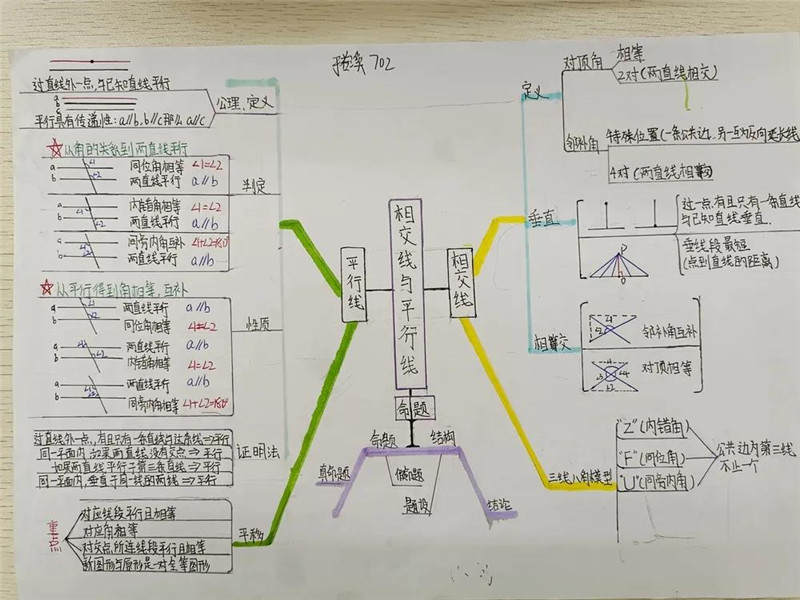 702
过直线外一点,与已知直线平行
公理、定义
a
b
c
平行具有传递性:a∥b,b∥c那么a∥c
☆从角的关系到两直线平行
判定
a
b
∠1
∠2
同位角相等 ∠1=∠2
两直线平行 a∥b
a
b
∠1
∠2
内错角相等 ∠1=∠2
两直线平行 a∥b
a
b
同旁内角互补 ∠1+∠2=180°
两直线平行 a∥b
☆从平行得到角相等,互补
性质
a
b
两直线平行 a∥b
同位角相等 ∠1=∠2
a
b
两直线平行 a∥b
内错角相等 ∠1=∠2
a
b
两直线平行 a∥b
同旁内角相等 ∠1+∠2=180°
证明法
过直线外一点,有且只有一条直线与这条线⇒平行
同一平面内,如果两直线没有交点⇒平行
如果两直线平行于第三条直线⇒平行
同一平面内,垂直于同一线的两线⇒平行
平移
重点
对应线段平行且相等
对应角相等
对交点所连线段平行且相等
新图形与原形是一对全等图形
平行线
相交线与平行线
相交线
命题
命题
结构
真命题
假命题
题设
结论
定义
对顶角
相等
2对(两直线相交)
邻补角
特殊位置(一条公共边,另一互为反向延长线
4对(两直线相交)
垂直
过一点,有且只有一条直线
与已知直线垂直.
垂线段最短
(点到直线的距离)
相交
邻补角互补
对顶相等
三线八角模型
"Z"(内错角)
"F"(同位角)
"U"(同旁内角)
公共边为第三线
不止一个